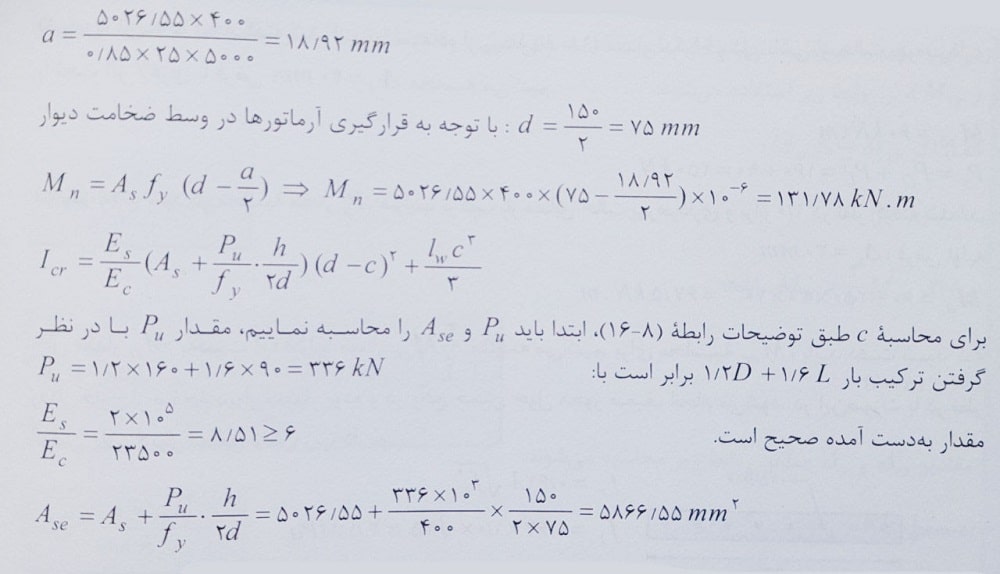 a = ۵۰۲۶/۵۵×۴۰۰ / ۰/۸۵×۲۵×۵۰۰۰ = ۱۸/۹۲ mm
با توجه به قرارگیری آرماتورها در وسط ضخامت دیوار : d = ۱۵۰ / ۲ = ۷۵ mm
M_n = A_s f_y (d − a/۲) ⇒ M_n = ۵۰۲۶/۵۵×۴۰۰×(۷۵− ۱۸/۹۲ / ۲)×۱۰^−۶ = ۱۳۱/۷۸ kN.m
I_cr = E_s/E_c (A_s + P_u/f_y . h/۲d) (d − c)^۲ + l_w c^۳ / ۳
برای محاسبهٔ c طبق توضیحات رابطهٔ (۸-۱۶)، ابتدا باید P_u و A_se را محاسبه نماییم، مقدار P_u با در نظر
گرفتن ترکیب بار ۱/۲D + ۱/۶ L برابر است با: P_u = ۱/۲×۱۶۰+۱/۶×۹۰ = ۳۳۶ kN
مقدار به‌دست آمده صحیح است. E_s/E_c = ۲×۱۰^۵ / ۲۳۵۰۰ = ۸/۵۱ ≥ ۶
A_se = A_s + P_u/f_y . h/۲d = ۵۰۲۶/۵۵ + ۳۳۶×۱۰^۳ / ۴۰۰ × ۱۵۰ / ۲×۷۵ = ۵۸۶۶/۵۵ mm^۲